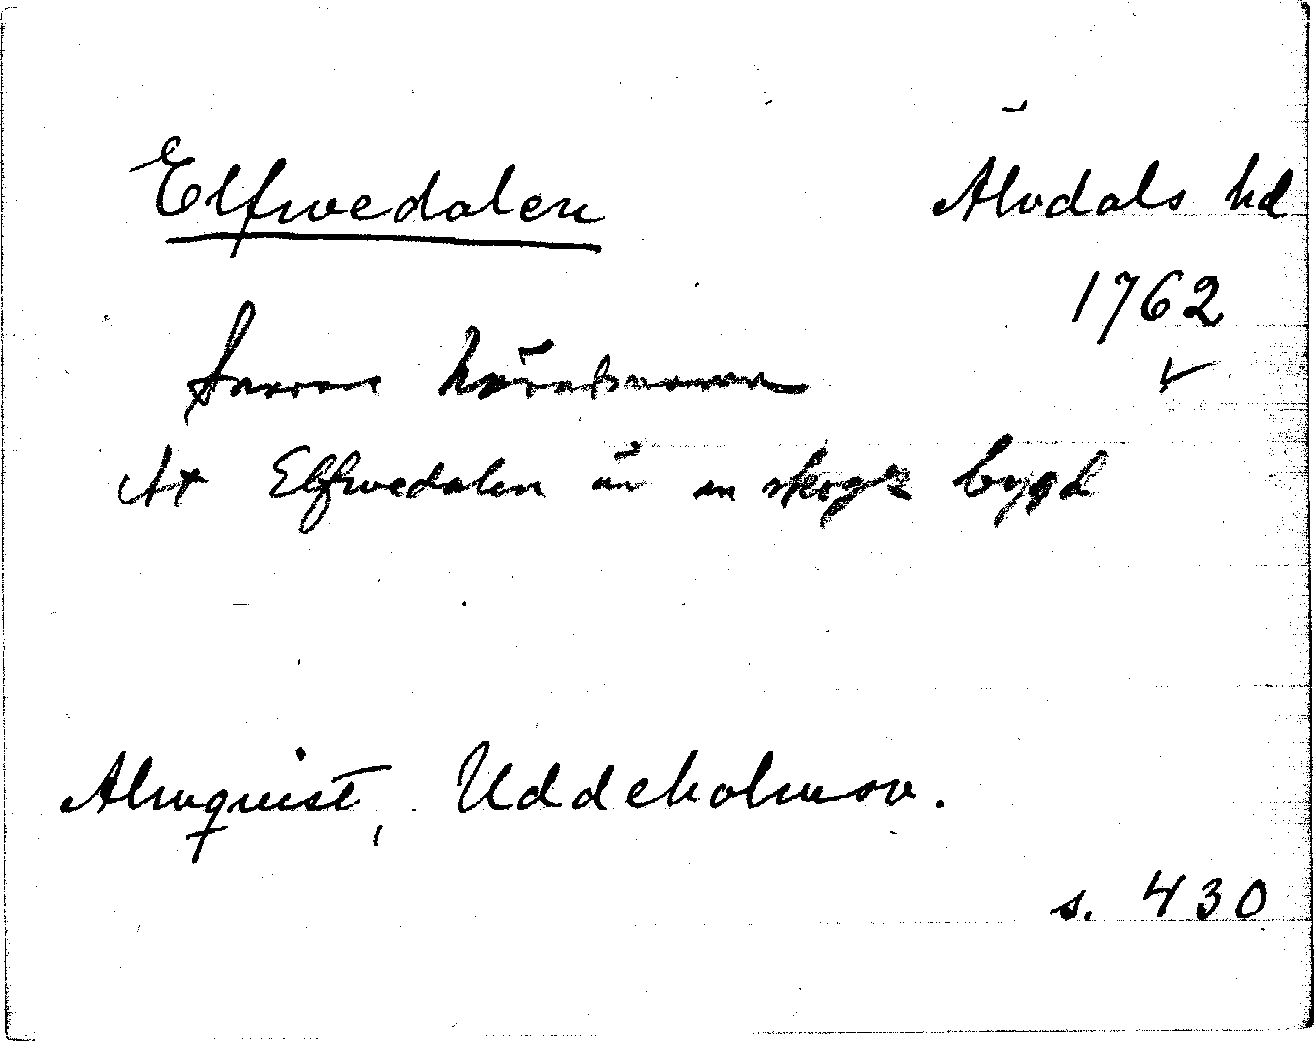 Elfwedalen
Älvdals hd
1762
At Elfwedalen är en skogz bygd
Almquist, Uddeholmsv.
s. 430